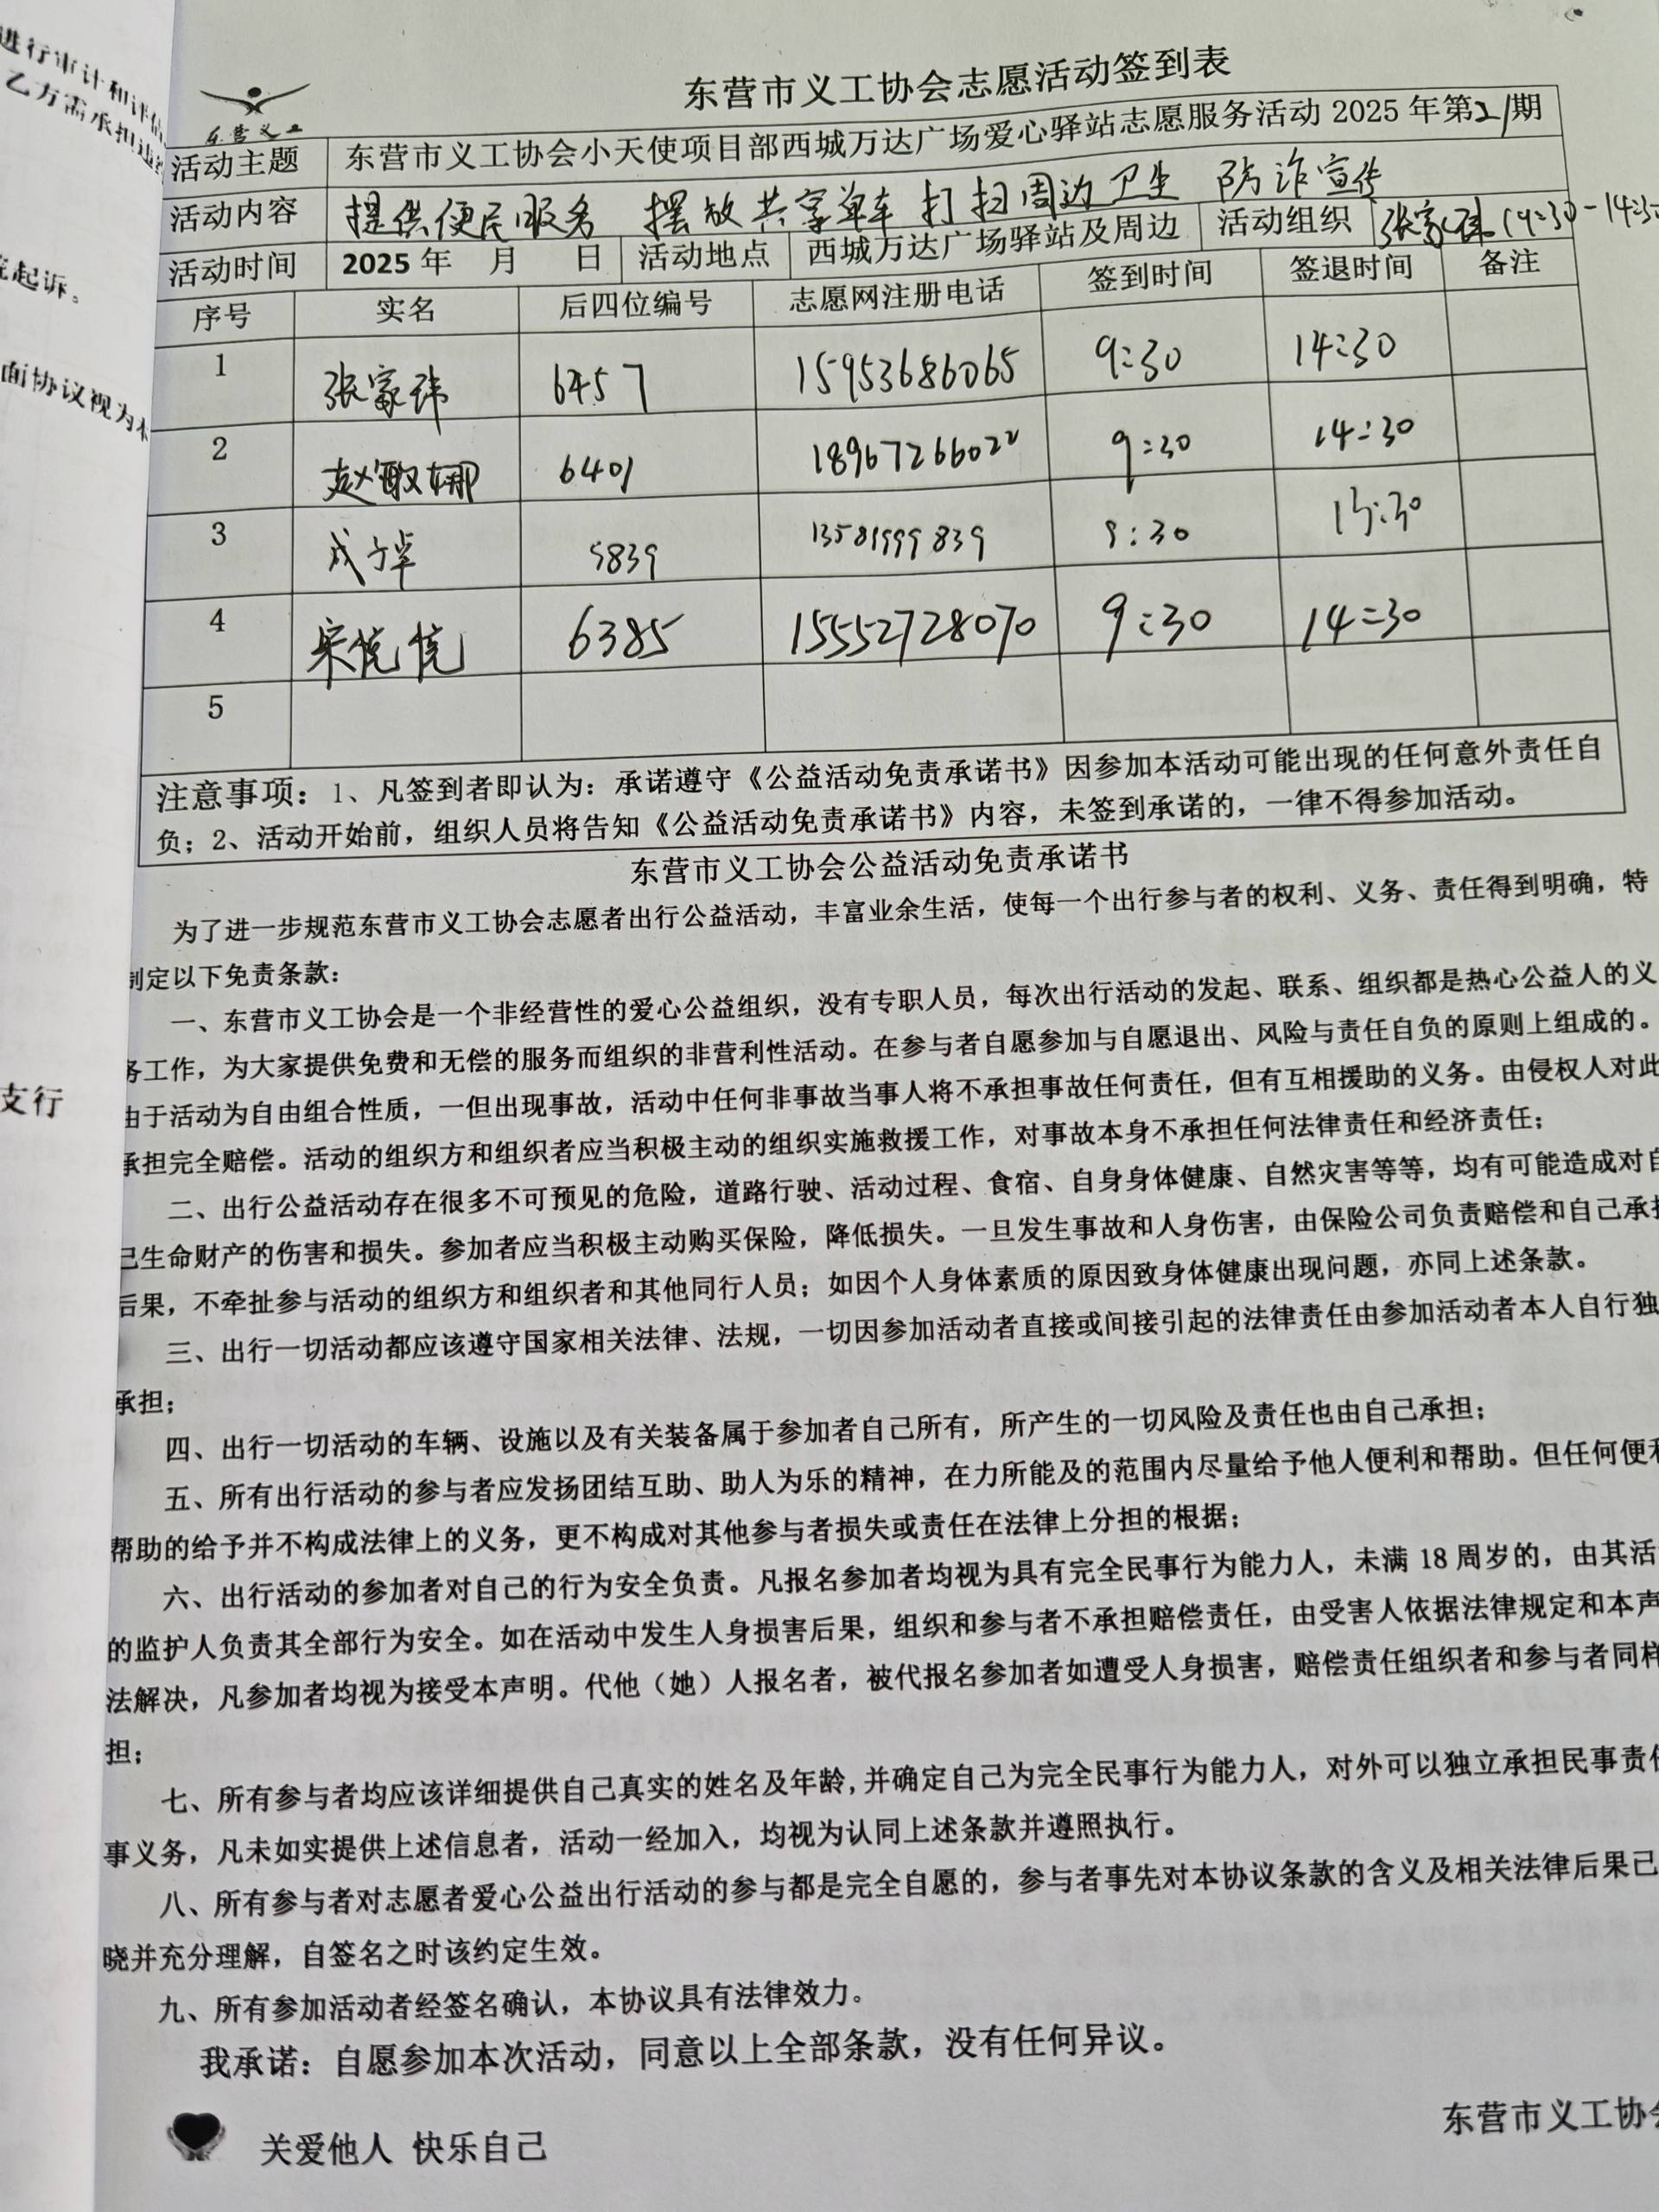 进行审计和评估
乙方需承担违约
起诉。
面协议视为本
支行
东营义工
东营市义工协会志愿活动签到表
活动主题 东营市义工协会小天使项目部西城万达广场爱心驿站志愿服务活动 2025 年第21期
活动内容 提供便民服务 摆放共享单车 打扫周边卫生 防诈宣传
活动时间 2025 年 月 日 活动地点 西城万达广场驿站及周边 活动组织 张家祎(9:30-14:30
序号 实名 后四位编号 志愿网注册电话 签到时间 签退时间 备注
1 张家祎 6457 15953686065 9:30 14:30
2 赵敏娜 6401 18967266022 9:30 14:30
3 成于卓 5839 13581999839 9:30 13:30
4 宋悦悦 6385 15552728070 9:30 14:30
5
注意事项：1、凡签到者即认为：承诺遵守《公益活动免责承诺书》因参加本活动可能出现的任何意外责任自
负；2、活动开始前，组织人员将告知《公益活动免责承诺书》内容，未签到承诺的，一律不得参加活动。
东营市义工协会公益活动免责承诺书
为了进一步规范东营市义工协会志愿者出行公益活动，丰富业余生活，使每一个出行参与者的权利、义务、责任得到明确，特
制定以下免责条款：
一、东营市义工协会是一个非经营性的爱心公益组织，没有专职人员，每次出行活动的发起、联系、组织都是热心公益人的义
务工作，为大家提供免费和无偿的服务而组织的非营利性活动。在参与者自愿参加与自愿退出、风险与责任自负的原则上组成的。
由于活动为自由组合性质，一但出现事故，活动中任何非事故当事人将不承担事故任何责任，但有互相援助的义务。由侵权人对此
承担完全赔偿。活动的组织方和组织者应当积极主动的组织实施救援工作，对事故本身不承担任何法律责任和经济责任；
二、出行公益活动存在很多不可预见的危险，道路行驶、活动过程、食宿、自身身体健康、自然灾害等等，均有可能造成对自
己生命财产的伤害和损失。参加者应当积极主动购买保险，降低损失。一旦发生事故和人身伤害，由保险公司负责赔偿和自己承担
后果，不牵扯参与活动的组织方和组织者和其他同行人员；如因个人身体素质的原因致身体健康出现问题，亦同上述条款。
三、出行一切活动都应该遵守国家相关法律、法规，一切因参加活动者直接或间接引起的法律责任由参加活动者本人自行独
承担；
四、出行一切活动的车辆、设施以及有关装备属于参加者自己所有，所产生的一切风险及责任也由自己承担；
五、所有出行活动的参与者应发扬团结互助、助人为乐的精神，在力所能及的范围内尽量给予他人便利和帮助。但任何便利
帮助的给予并不构成法律上的义务，更不构成对其他参与者损失或责任在法律上分担的根据；
六、出行活动的参加者对自己的行为安全负责。凡报名参加者均视为具有完全民事行为能力人，未满 18 周岁的，由其活
的监护人负责其全部行为安全。如在活动中发生人身损害后果，组织和参与者不承担赔偿责任，由受害人依据法律规定和本声
法解决，凡参加者均视为接受本声明。代他（她）人报名者，被代报名参加者如遭受人身损害，赔偿责任组织者和参与者同样
担；
七、所有参与者均应该详细提供自己真实的姓名及年龄,并确定自己为完全民事行为能力人，对外可以独立承担民事责任
事义务，凡未如实提供上述信息者，活动一经加入，均视为认同上述条款并遵照执行。
八、所有参与者对志愿者爱心公益出行活动的参与都是完全自愿的，参与者事先对本协议条款的含义及相关法律后果已
晓并充分理解，自签名之时该约定生效。
九、所有参加活动者经签名确认，本协议具有法律效力。
我承诺：自愿参加本次活动，同意以上全部条款，没有任何异议。
关爱他人 快乐自己
东营市义工协会